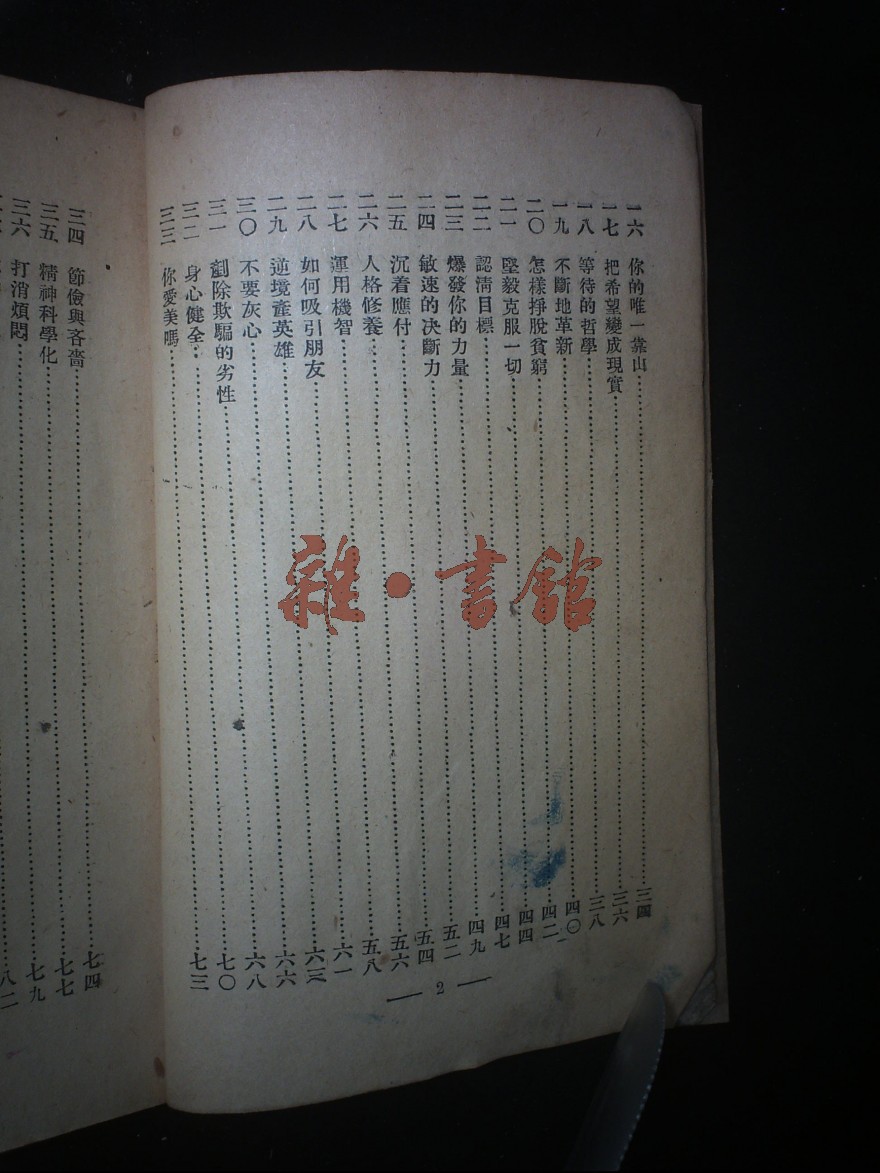 一六 你的唯一靠山……三四
一七 把希望變成現實……三六
一八 等待的哲學……三八
一九 不斷地革新……四〇
二〇 怎樣掙脫貧窮……四二
二一 堅毅克服一切……四四
二二 認清目標……四七
二三 爆發你的力量……四九
二四 敏速的决斷力……五二
二五 沉着應付……五四
二六 人格修養……五六
二七 運用機智……五八
二八 如何吸引朋友……六一
二九 逆境產英雄……六三
三〇 不要灰心……六六
三一 剷除欺騙的劣性……六八
三二 身心健全……七〇
三三 你愛美嗎……七三
— 2 —
三四 節儉與吝嗇……七四
三五 精神科學化……七七
三六 打消煩悶……七九
八二
雜·書館